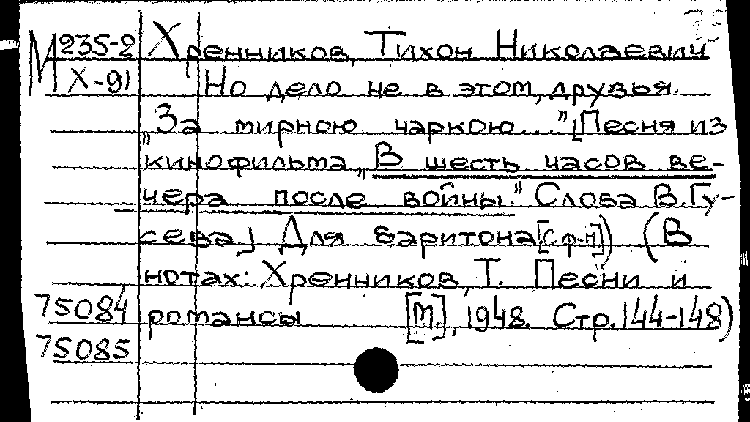 М 235-2 Хренников, Тихон Николаевич
Х-91 Но дело не в этом, друзья.
"За мирною чаркою..." [Песня из
кинофильма "В шесть часов ве-
чера после войны." Слова В. Гу-
сева] Для баритона [с ф-п]) (В
нотах: Хренников, Т. Песни и
75084 романсы [М.], 1948. Стр. 144-148)
75085